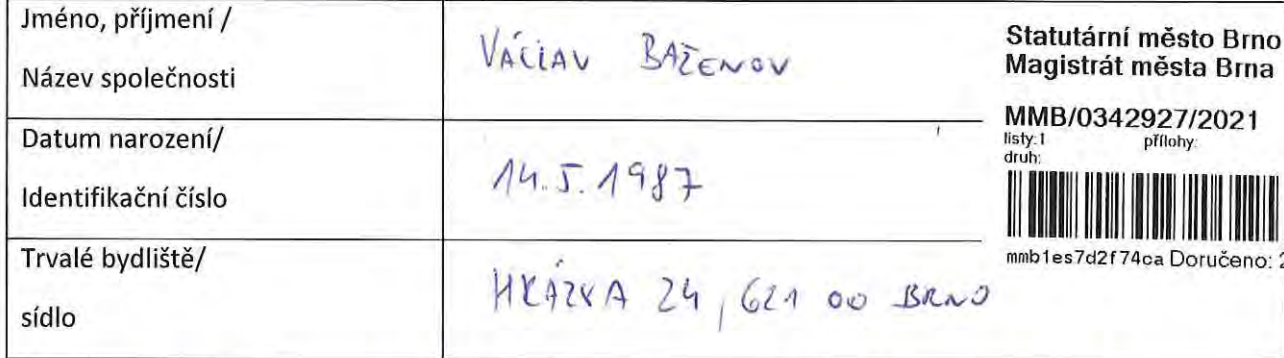 Jméno, příjmení /
Název společnosti
VÁCLAV BAŽENOV
Datum narození/
Identifikační číslo
14.5.1987
Trvalé bydliště/
sídlo
HRÁZKA 24, 621 00 BRNO
Statutární město Brno
Magistrát města Brna
MMB/0342927/2021
listy:1 přílohy:
druh:
mmb1es7d2f74ca Doručeno: 2